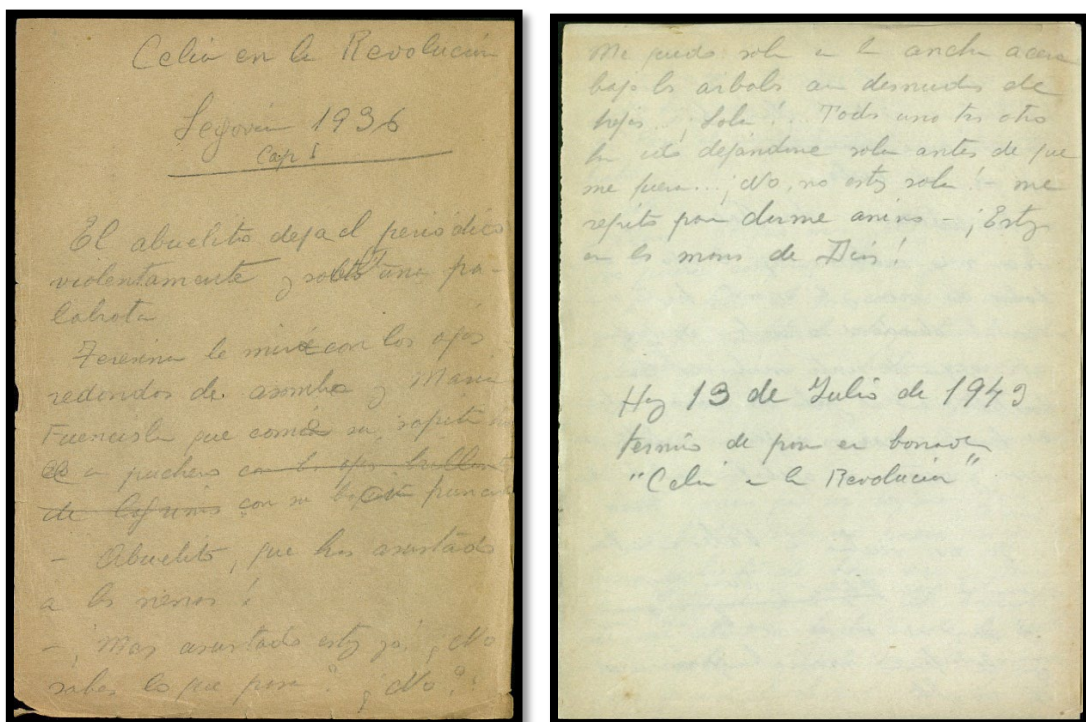 Celia en la Revolución
Segovia 1936
Cap I
El abuelito deja el periódico
violentamente y soltó una pa-
labrota
Teresina le mira con los ojos
redondos de asombro y Maria
Fuencisla que comía su sopita
en puchero con los ojos brillantes
de lagrimas con su
- Abuelito, que has asustado
a las nenas!
- ¡Mas asustado estoy yo! ¿No
sabes lo que pasa? ¿No?
Me quedo sola en la ancha acera
bajo los arboles aun desnudos de
hojas... ¡Sola!... Todos uno tras otro
han ido dejándome sola antes de que
me fuera... ¡No, no estoy sola! - me
repito para darme animo - ¡Estoy
en las manos de Dios!
Hoy 13 de Julio de 1943
termino de poner en borrador
"Celia en la Revolución"